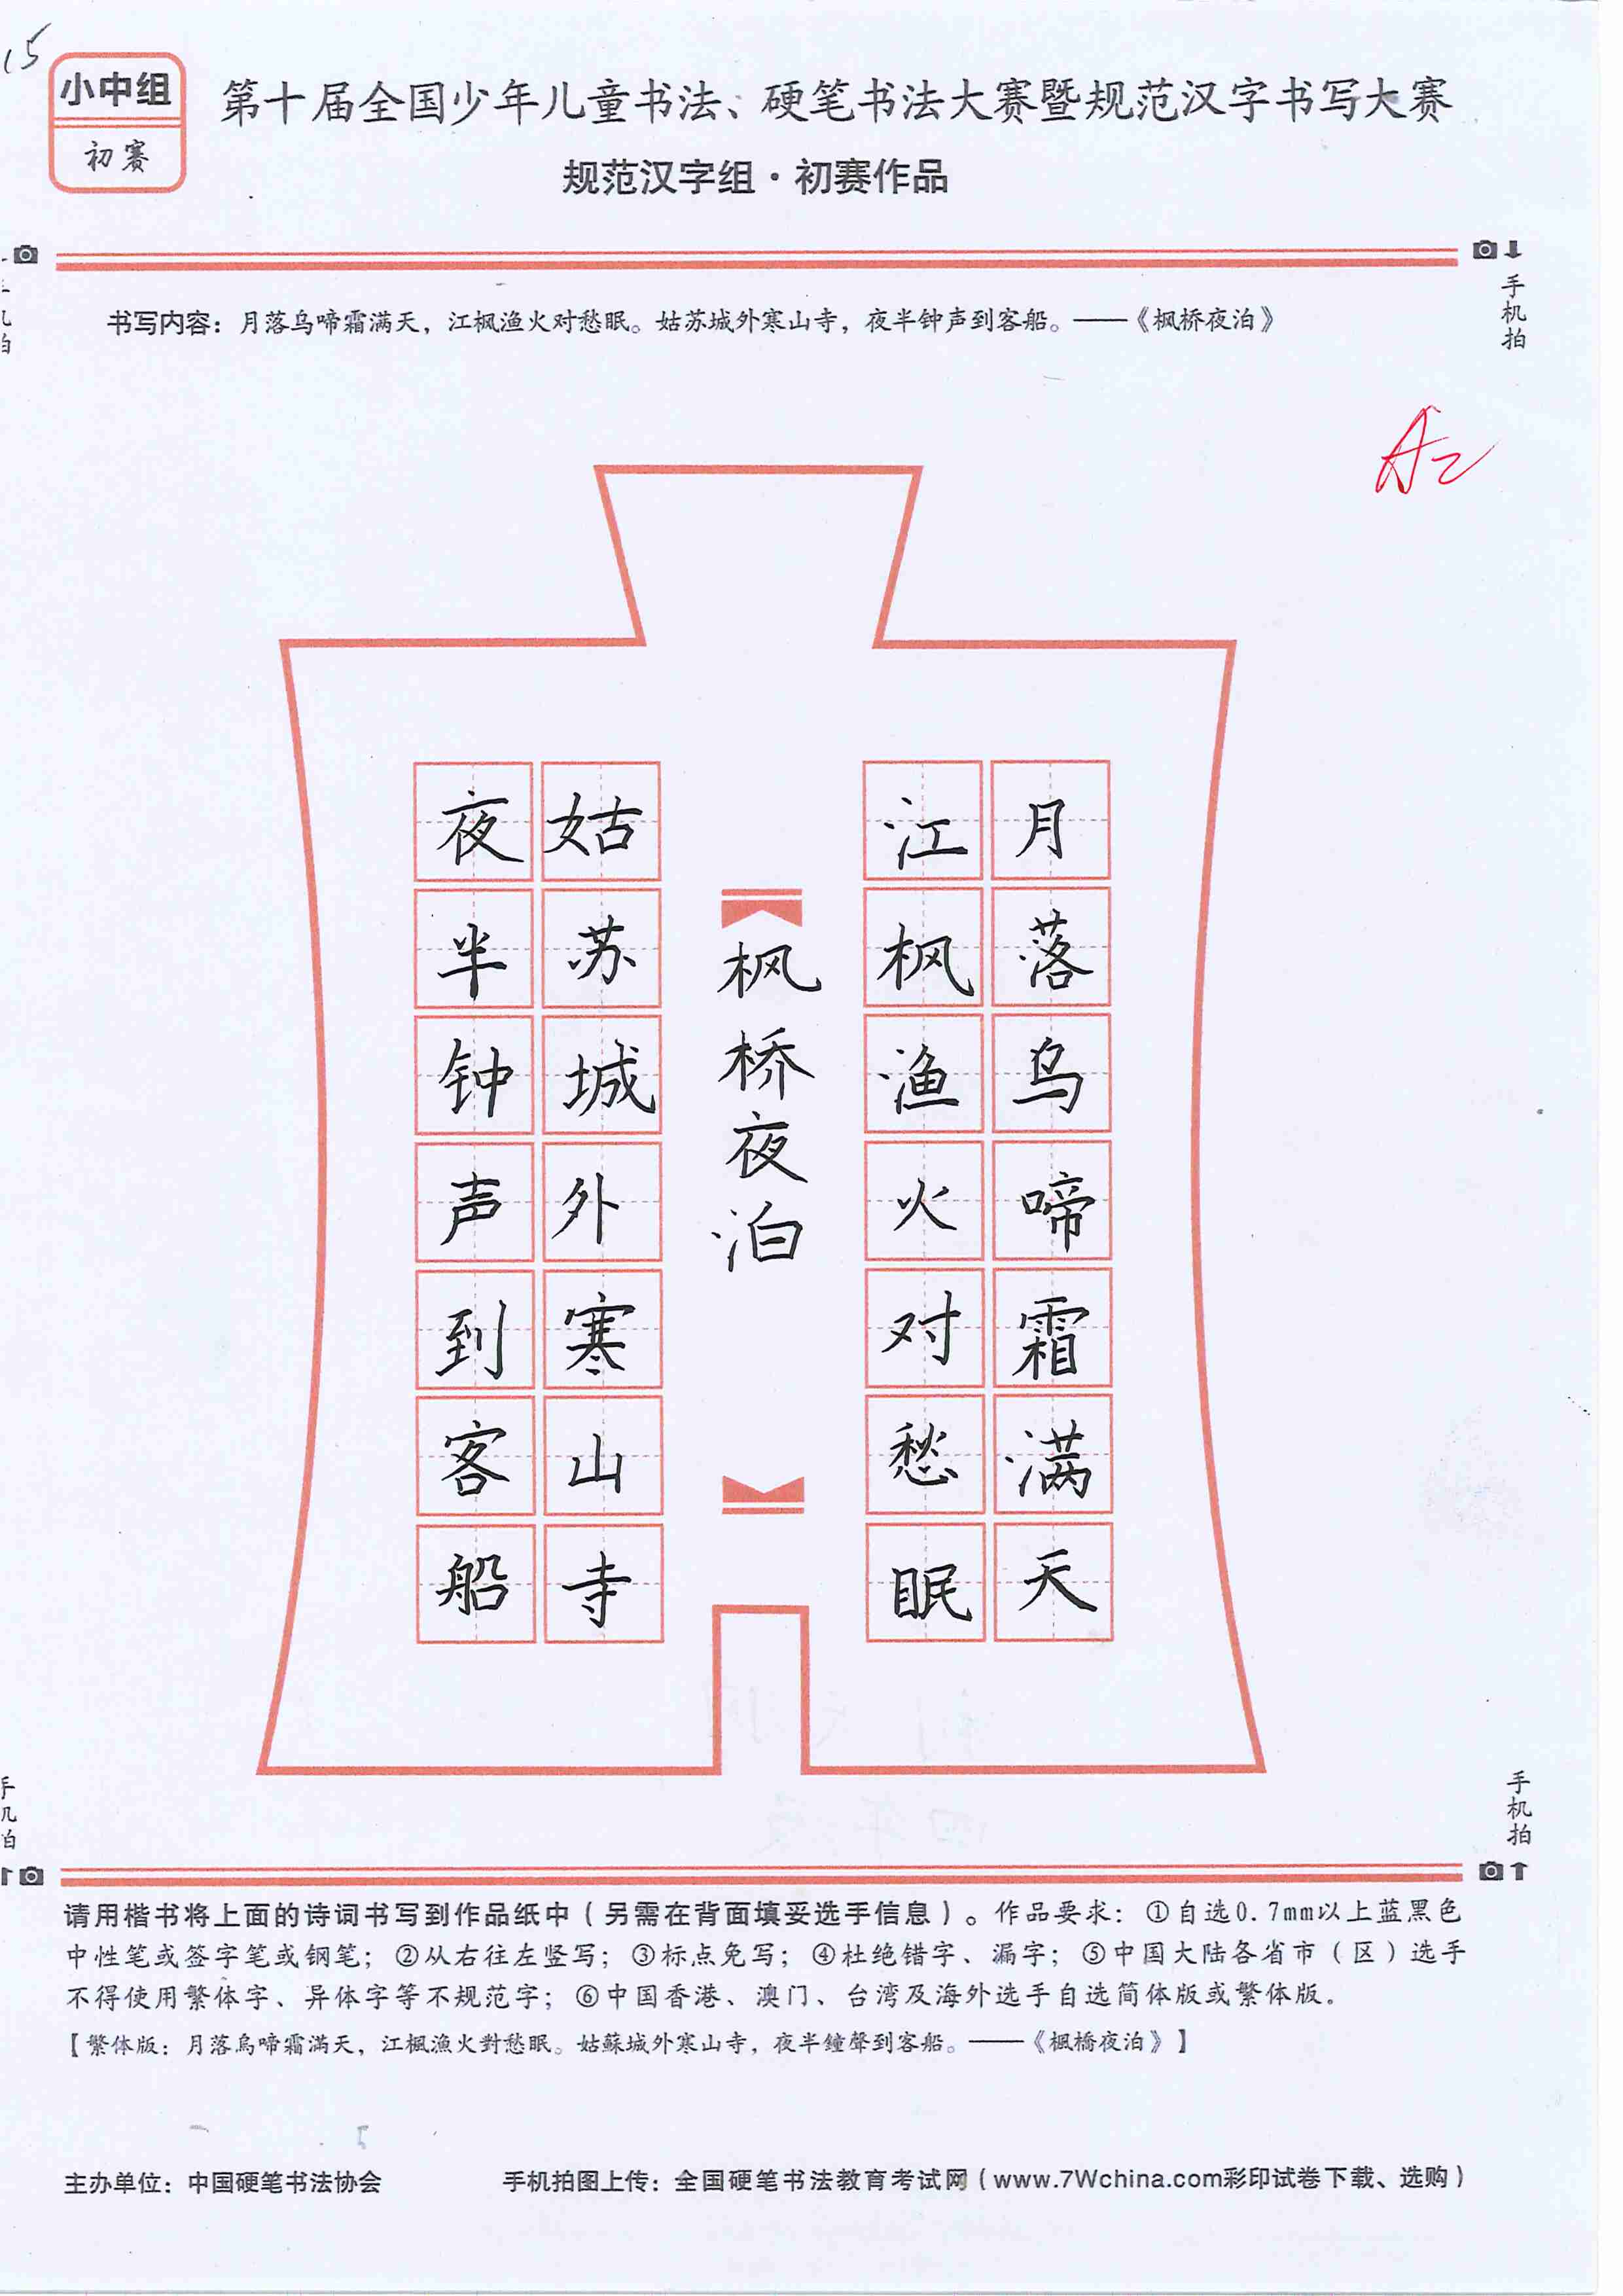 15
小中组
初赛
第十届全国少年儿童书法、硬笔书法大赛暨规范汉字书写大赛
规范汉字组·初赛作品
手机拍
书写内容：月落乌啼霜满天，江枫渔火对愁眠。姑苏城外寒山寺，夜半钟声到客船。——《枫桥夜泊》
A2
月落乌啼霜满天
江枫渔火对愁眠
枫桥夜泊
姑苏城外寒山寺
夜半钟声到客船
手机拍
手机拍
请用楷书将上面的诗词书写到作品纸中（另需在背面填妥选手信息）。作品要求：①自选0.7mm以上蓝黑色
中性笔或签字笔或钢笔；②从右往左竖写；③标点免写；④杜绝错字、漏字；⑤中国大陆各省市（区）选手
不得使用繁体字、异体字等不规范字；⑥中国香港、澳门、台湾及海外选手自选简体版或繁体版。
【繁体版：月落烏啼霜滿天，江楓漁火對愁眠。姑蘇城外寒山寺，夜半鐘聲到客船。——《楓橋夜泊》】
主办单位：中国硬笔书法协会
手机拍图上传：全国硬笔书法教育考试网（www.7Wchina.com彩印试卷下载、选购）